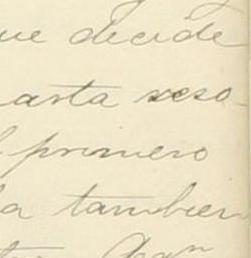 ue decide
arta reso-
l primero
la tambien